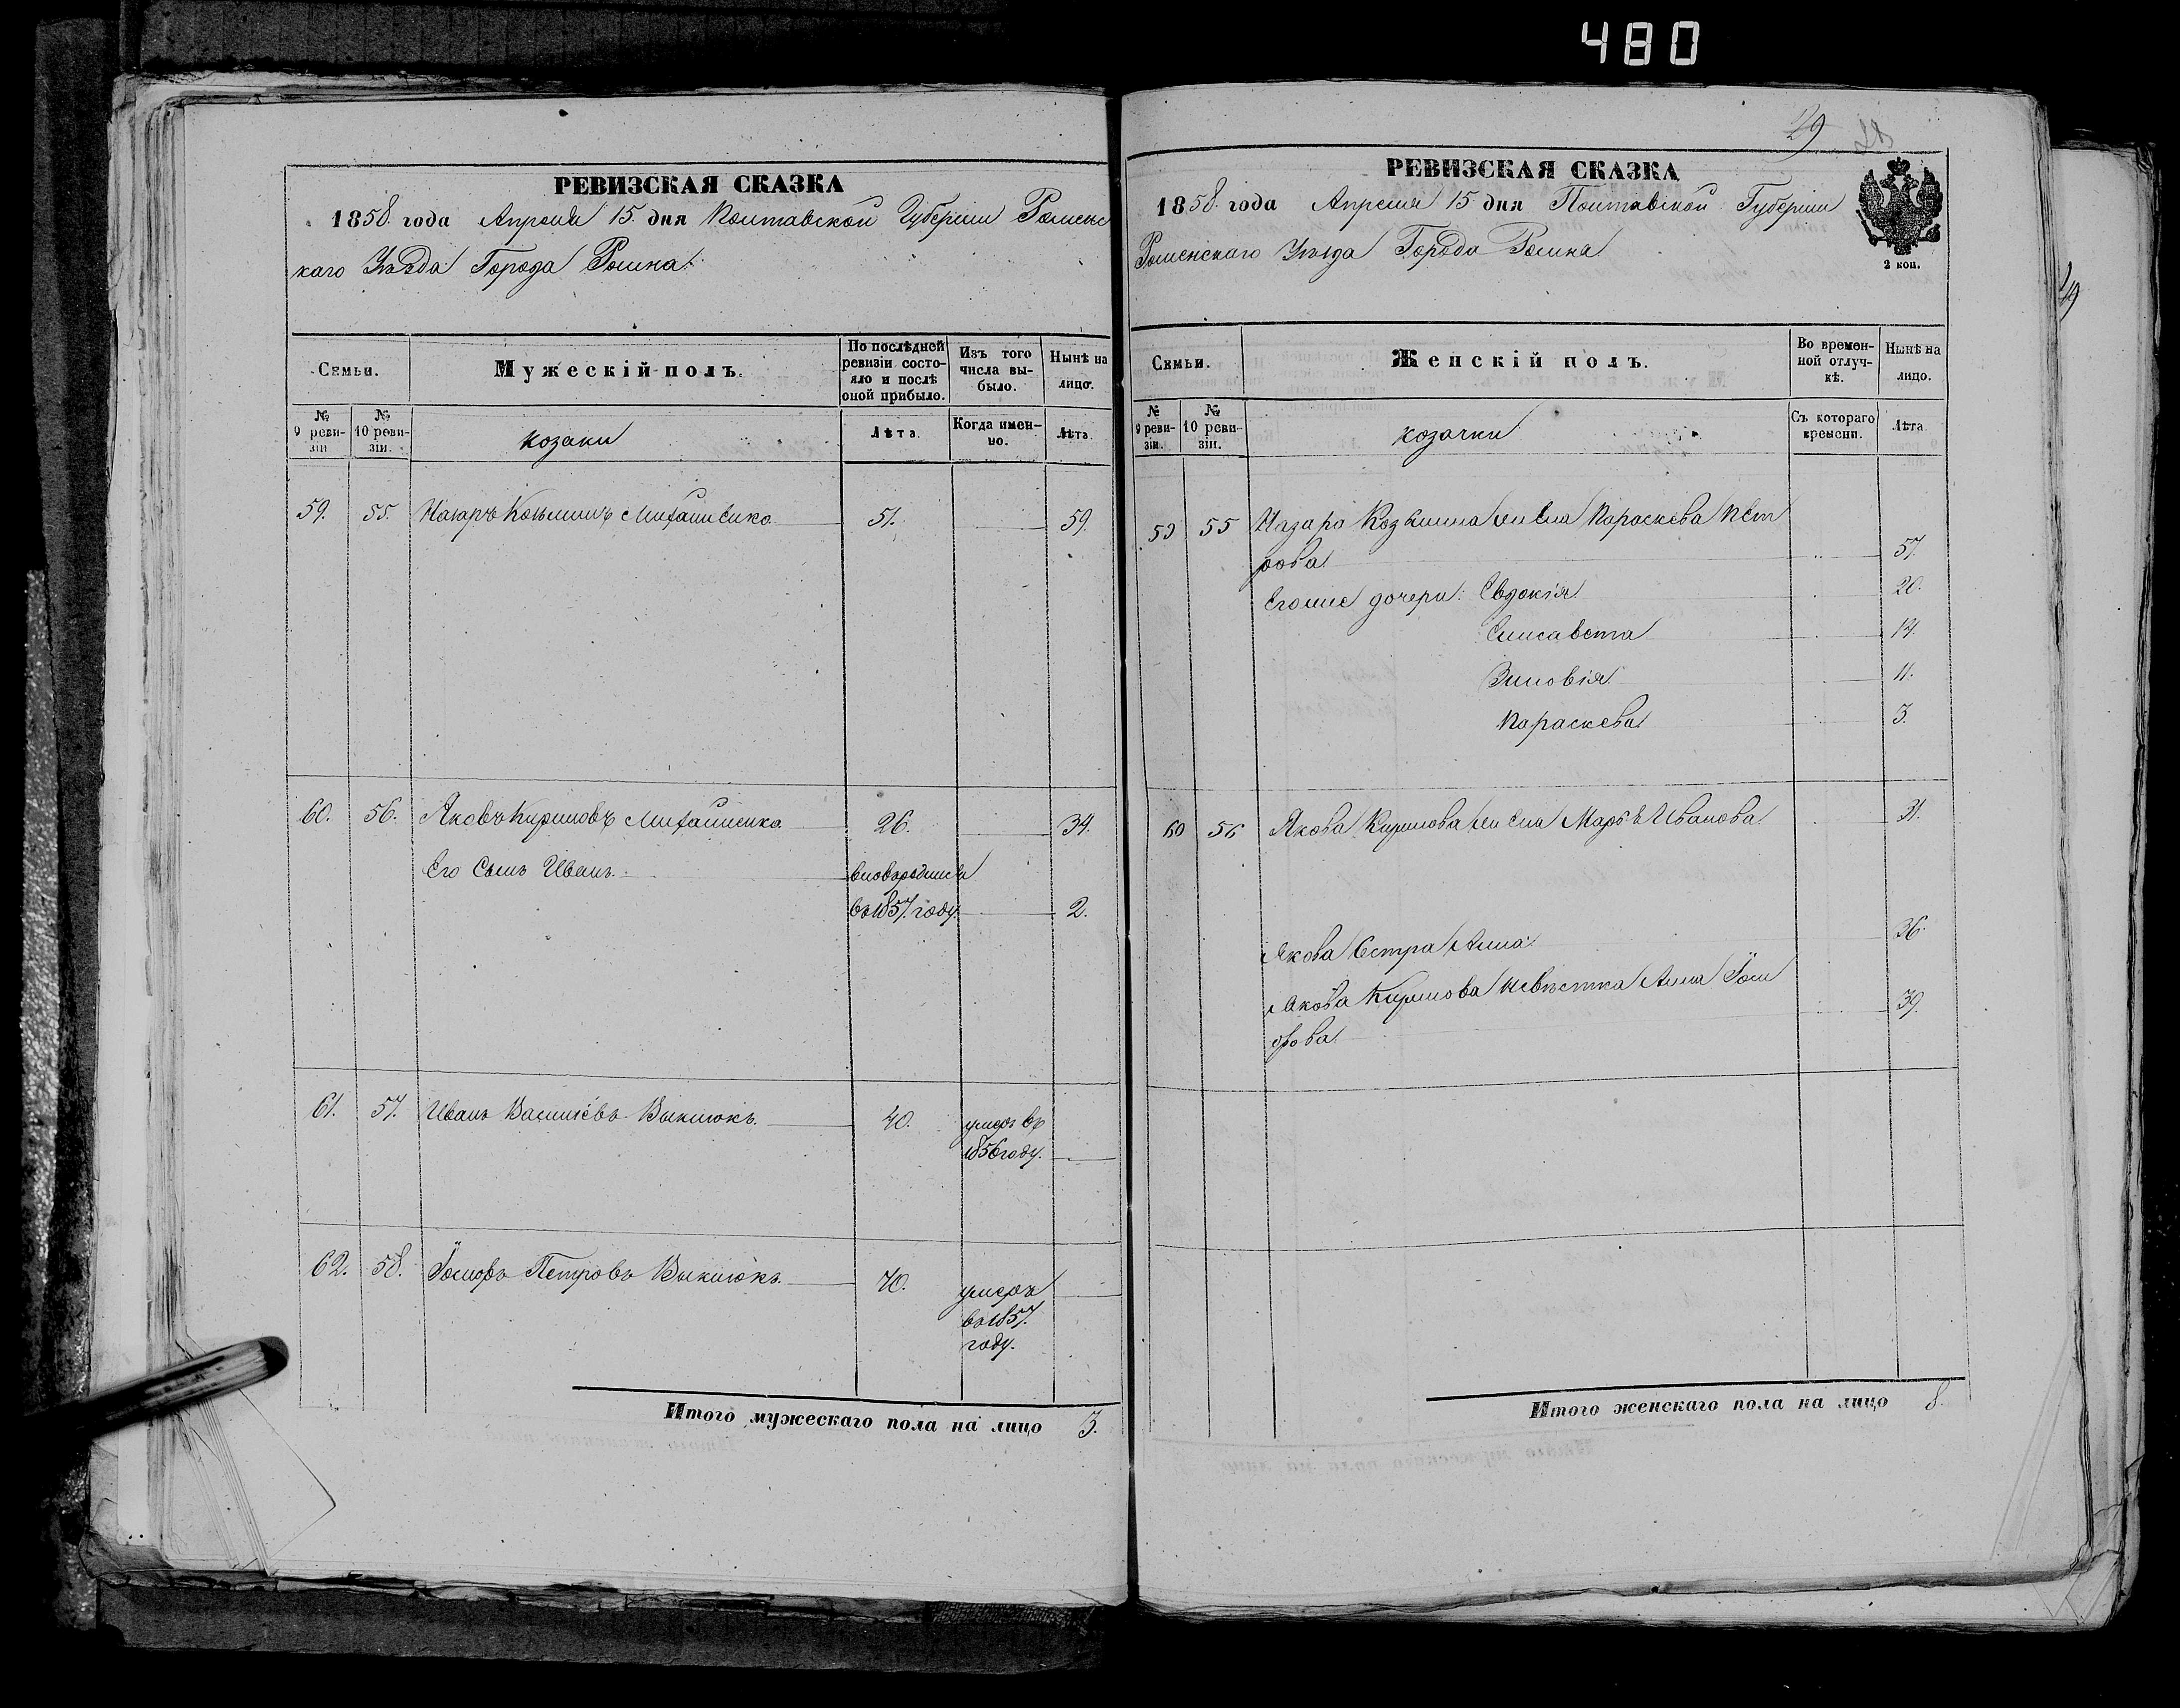 480
РЕВИЗСКАЯ СКАЗКА
1858. года Апреля 15. дня Полтавской Губерніи Роменс
каго Уѣзда Города Ромна.
Семьи.
Мужескій полъ.
По послѣдней ревизіи состояло и послѣ оной прибыло.
Изъ того числа выбыло.
Нынѣ на лицо.
№ 9 ревизіи
№ 10 ревизіи.
козаки
Лѣта.
Когда именно.
Лѣта.
59. 55. Назаръ Козьминъ Михайленко 51. 59.
60. 56. Яковъ Кириловъ Михайленко. 26. 34.
Его Сынъ Иванъ. вновьродился
въ 1857. году. 2.
61. 57. Иванъ Василіевъ Выклюкъ. 40. умеръ въ
1856 году.
62. 58. Іосифъ Петровъ Выклюкъ. 70. умеръ
въ 1857.
году.
Итого мужескаго пола на лицо 3.
29
РЕВИЗСКАЯ СКАЗКА
1858. года Апреля 15 дня Полтавской Губерніи
Роменскаго Уѣзда Города Ромна
2 коп.
Семьи.
Женскій полъ.
Во временной отлучкѣ.
Нынѣ на лицо.
№ 9 ревизіи.
№ 10 ревизіи.
козачки
Съ котораго времени.
Лѣта
59 55 Назара Козьмина жена Параскева Пет
рова 57.
Егоже дочери: Евдокія 20.
Елисавета 14.
Зиновія 11.
Параскева 3.
60 56 Якова Кирилова жена Марѳа Иванова 31.
Якова Сестра Анна 36.
Якова Кирилова Невѣстка Анна Іоси
фова 39.
Итого женскаго пола на лицо 8.
29